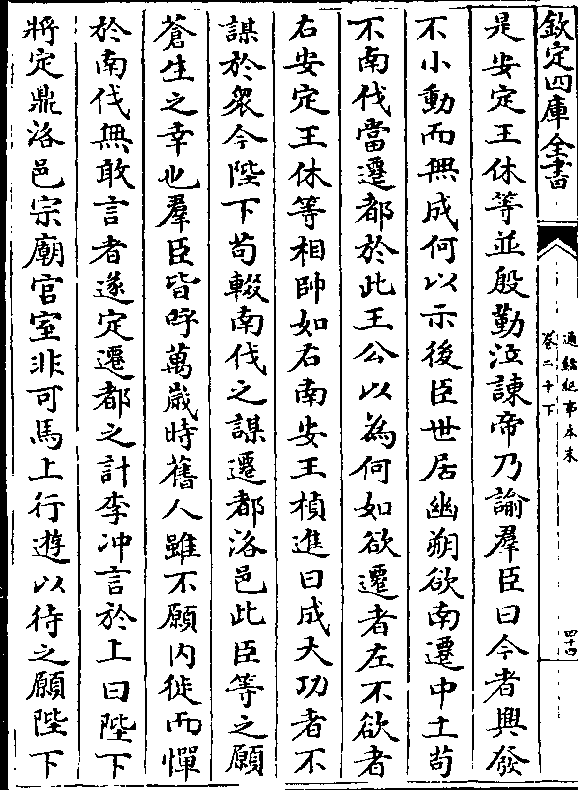 欽定四庫全書
通鑑紀事本末
卷二十下
四十四
是安定王休等並殷勤泣諫帝乃諭羣臣曰今者興發
不小動而無成何以示後臣世居幽朔欲南遷中土茍
不南伐當遷都於此王公以為何如欲遷者左不欲者
右安定王休等相帥如右南安王楨進曰成大功者不
謀於衆今陛下茍輟南伐之謀遷都洛邑此臣等之願
蒼生之幸也羣臣皆呼萬嵗時舊人雖不願内徙而憚
於南伐無敢言者遂定遷都之計李冲言於上曰陛下
將定鼎洛邑宗廟宫室非可馬上行遊以待之願陛下